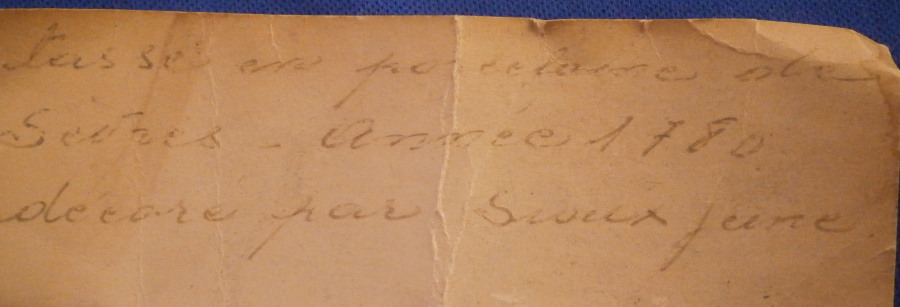 tasse en porcelaine de
Sèvres - Année 1780
décoré par Sioux june